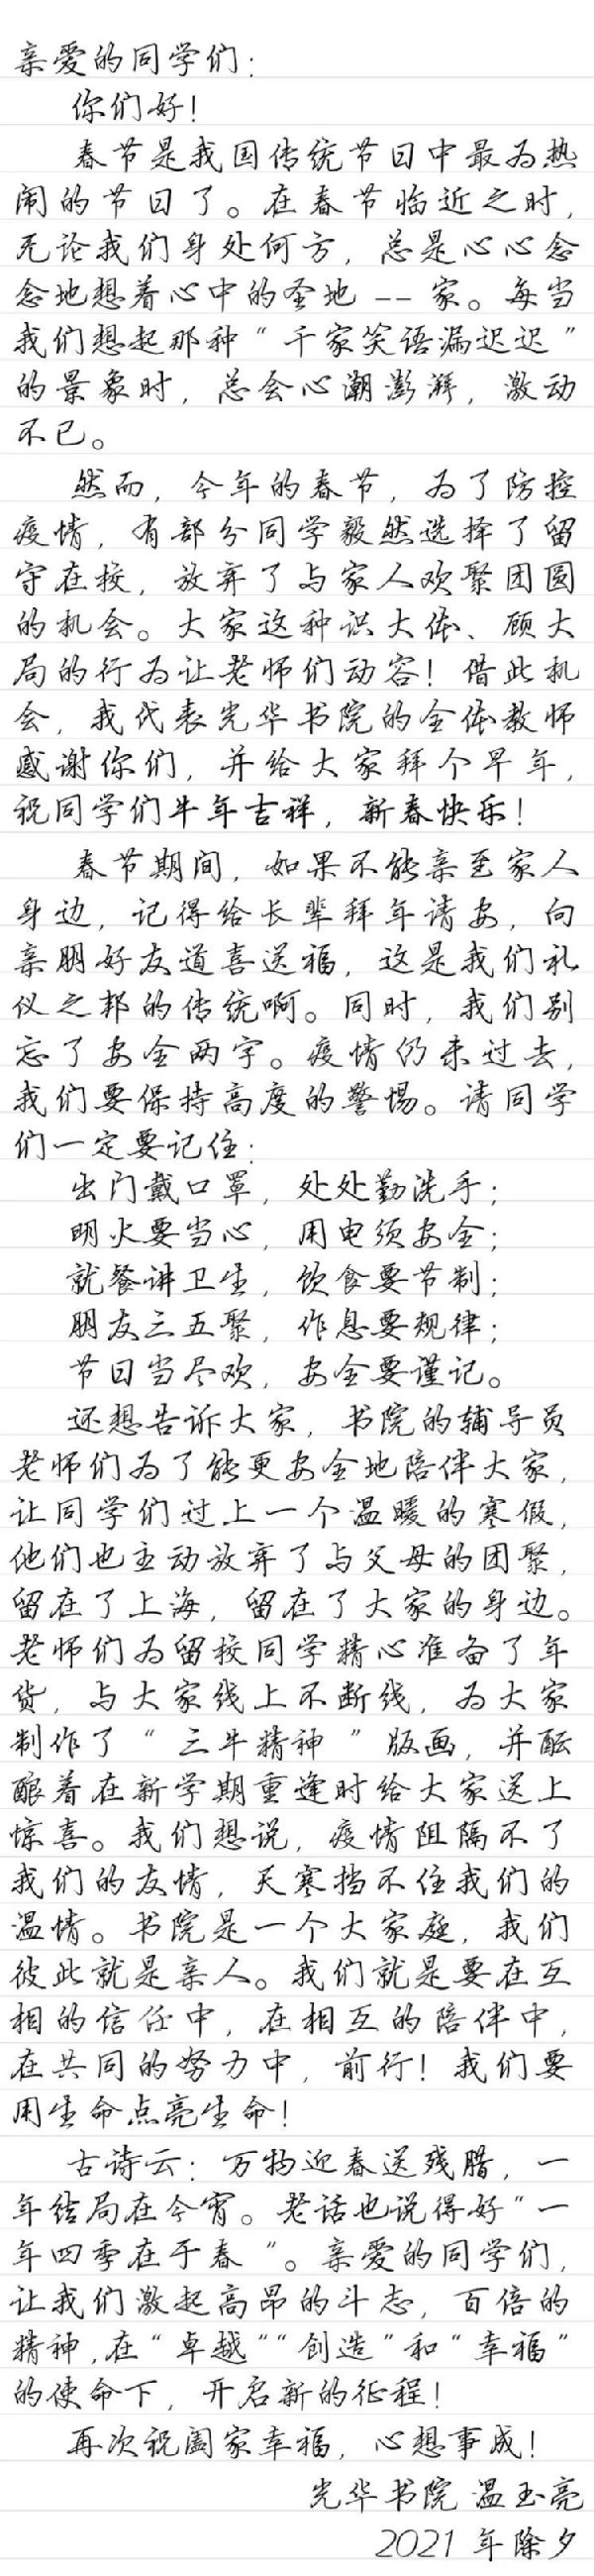 亲爱的同学们：
你们好！
春节是我国传统节日中最为热
闹的节日了。在春节临近之时，
无论我们身处何方，总是心心念
念地想着心中的圣地--家。每当
我们想起那种“千家笑语漏迟迟”
的景象时，总会心潮澎湃，激动
不已。
然而，今年的春节，为了防控
疫情，有部分同学毅然选择了留
守在校，放弃了与家人欢聚团圆
的机会。大家这种识大体、顾大
局的行为让老师们动容！借此机
会，我代表光华书院的全体教师
感谢你们，并给大家拜个早年，
祝同学们牛年吉祥，新春快乐！
春节期间，如果不能亲至家人
身边，记得给长辈拜年请安，向
亲朋好友道喜送福，这是我们礼
仪之邦的传统啊。同时，我们别
忘了安全两字。疫情仍未过去，
我们要保持高度的警惕。请同学
们一定要记住：
出门戴口罩，处处勤洗手；
明火要当心，用电须安全；
就餐讲卫生，饮食要节制；
朋友三五聚，作息要规律；
节日当尽欢，安全要谨记。
还想告诉大家，书院的辅导员
老师们为了能更安全地陪伴大家，
让同学们过上一个温暖的寒假，
他们也主动放弃了与父母的团聚，
留在了上海，留在了大家的身边。
老师们为留校同学精心准备了年
货，与大家线上不断线，为大家
制作了“三牛精神”版画，并酝
酿着在新学期重逢时给大家送上
惊喜。我们想说，疫情阻隔不了
我们的友情，天寒挡不住我们的
温情。书院是一个大家庭，我们
彼此就是亲人。我们就是要在互
相的信任中，在相互的陪伴中，
在共同的努力中，前行！我们要
用生命点亮生命！
古诗云：万物迎春送残腊，一
年结局在今宵。老话也说得好“一
年四季在于春“。亲爱的同学们，
让我们激起高昂的斗志，百倍的
精神,在“卓越”“创造”和“幸福”
的使命下，开启新的征程！
再次祝阖家幸福，心想事成！
光华书院 温玉亮
2021年除夕